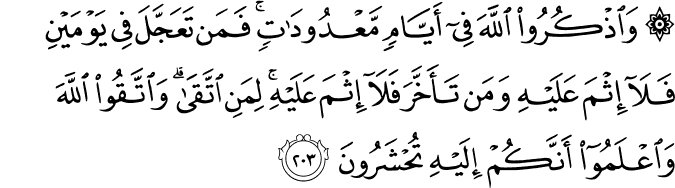 ۞ وَٱذْكُرُوا۟ ٱللَّهَ فِىٓ أَيَّامٍ مَّعْدُودَٰتٍ ۚ فَمَن تَعَجَّلَ فِى يَوْمَيْنِ
فَلَآ إِثْمَ عَلَيْهِ وَمَن تَأَخَّرَ فَلَآ إِثْمَ عَلَيْهِ ۚ لِمَنِ ٱتَّقَىٰ ۗ وَٱتَّقُوا۟ ٱللَّهَ
وَٱعْلَمُوٓا۟ أَنَّكُمْ إِلَيْهِ تُحْشَرُونَ ٢٠٣